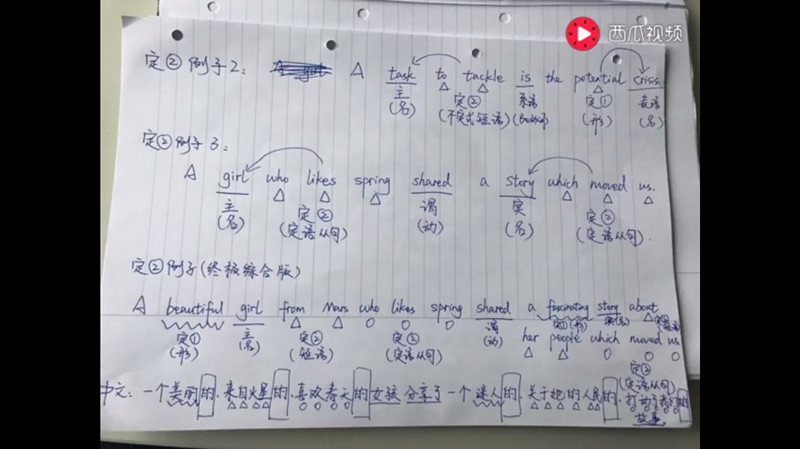 西瓜视频
定② 例子2: A task to tackle is the potential crisis.
主 定② 系语 定① 表语
(名) (不定式短语) (be动词) (形) (名)
定②例子3:
A girl who likes spring shared a story which moved us.
主 定② 谓 宾 定②
(名) (定语从句) (动) (名) (定语从句)
定②例子(终极综合版)
A beautiful girl from Mars who likes spring shared a fascinating story about
her people which moved us.
定① 主 定② 定② 谓 定①(形)
(形) (名) (短语) (定语从句) (动)
定②
(定语从句)
中文: 一个美丽的,来自火星的,喜欢春天的女孩分享了一个迷人的,关于她的人民的,打动了我们的
故事